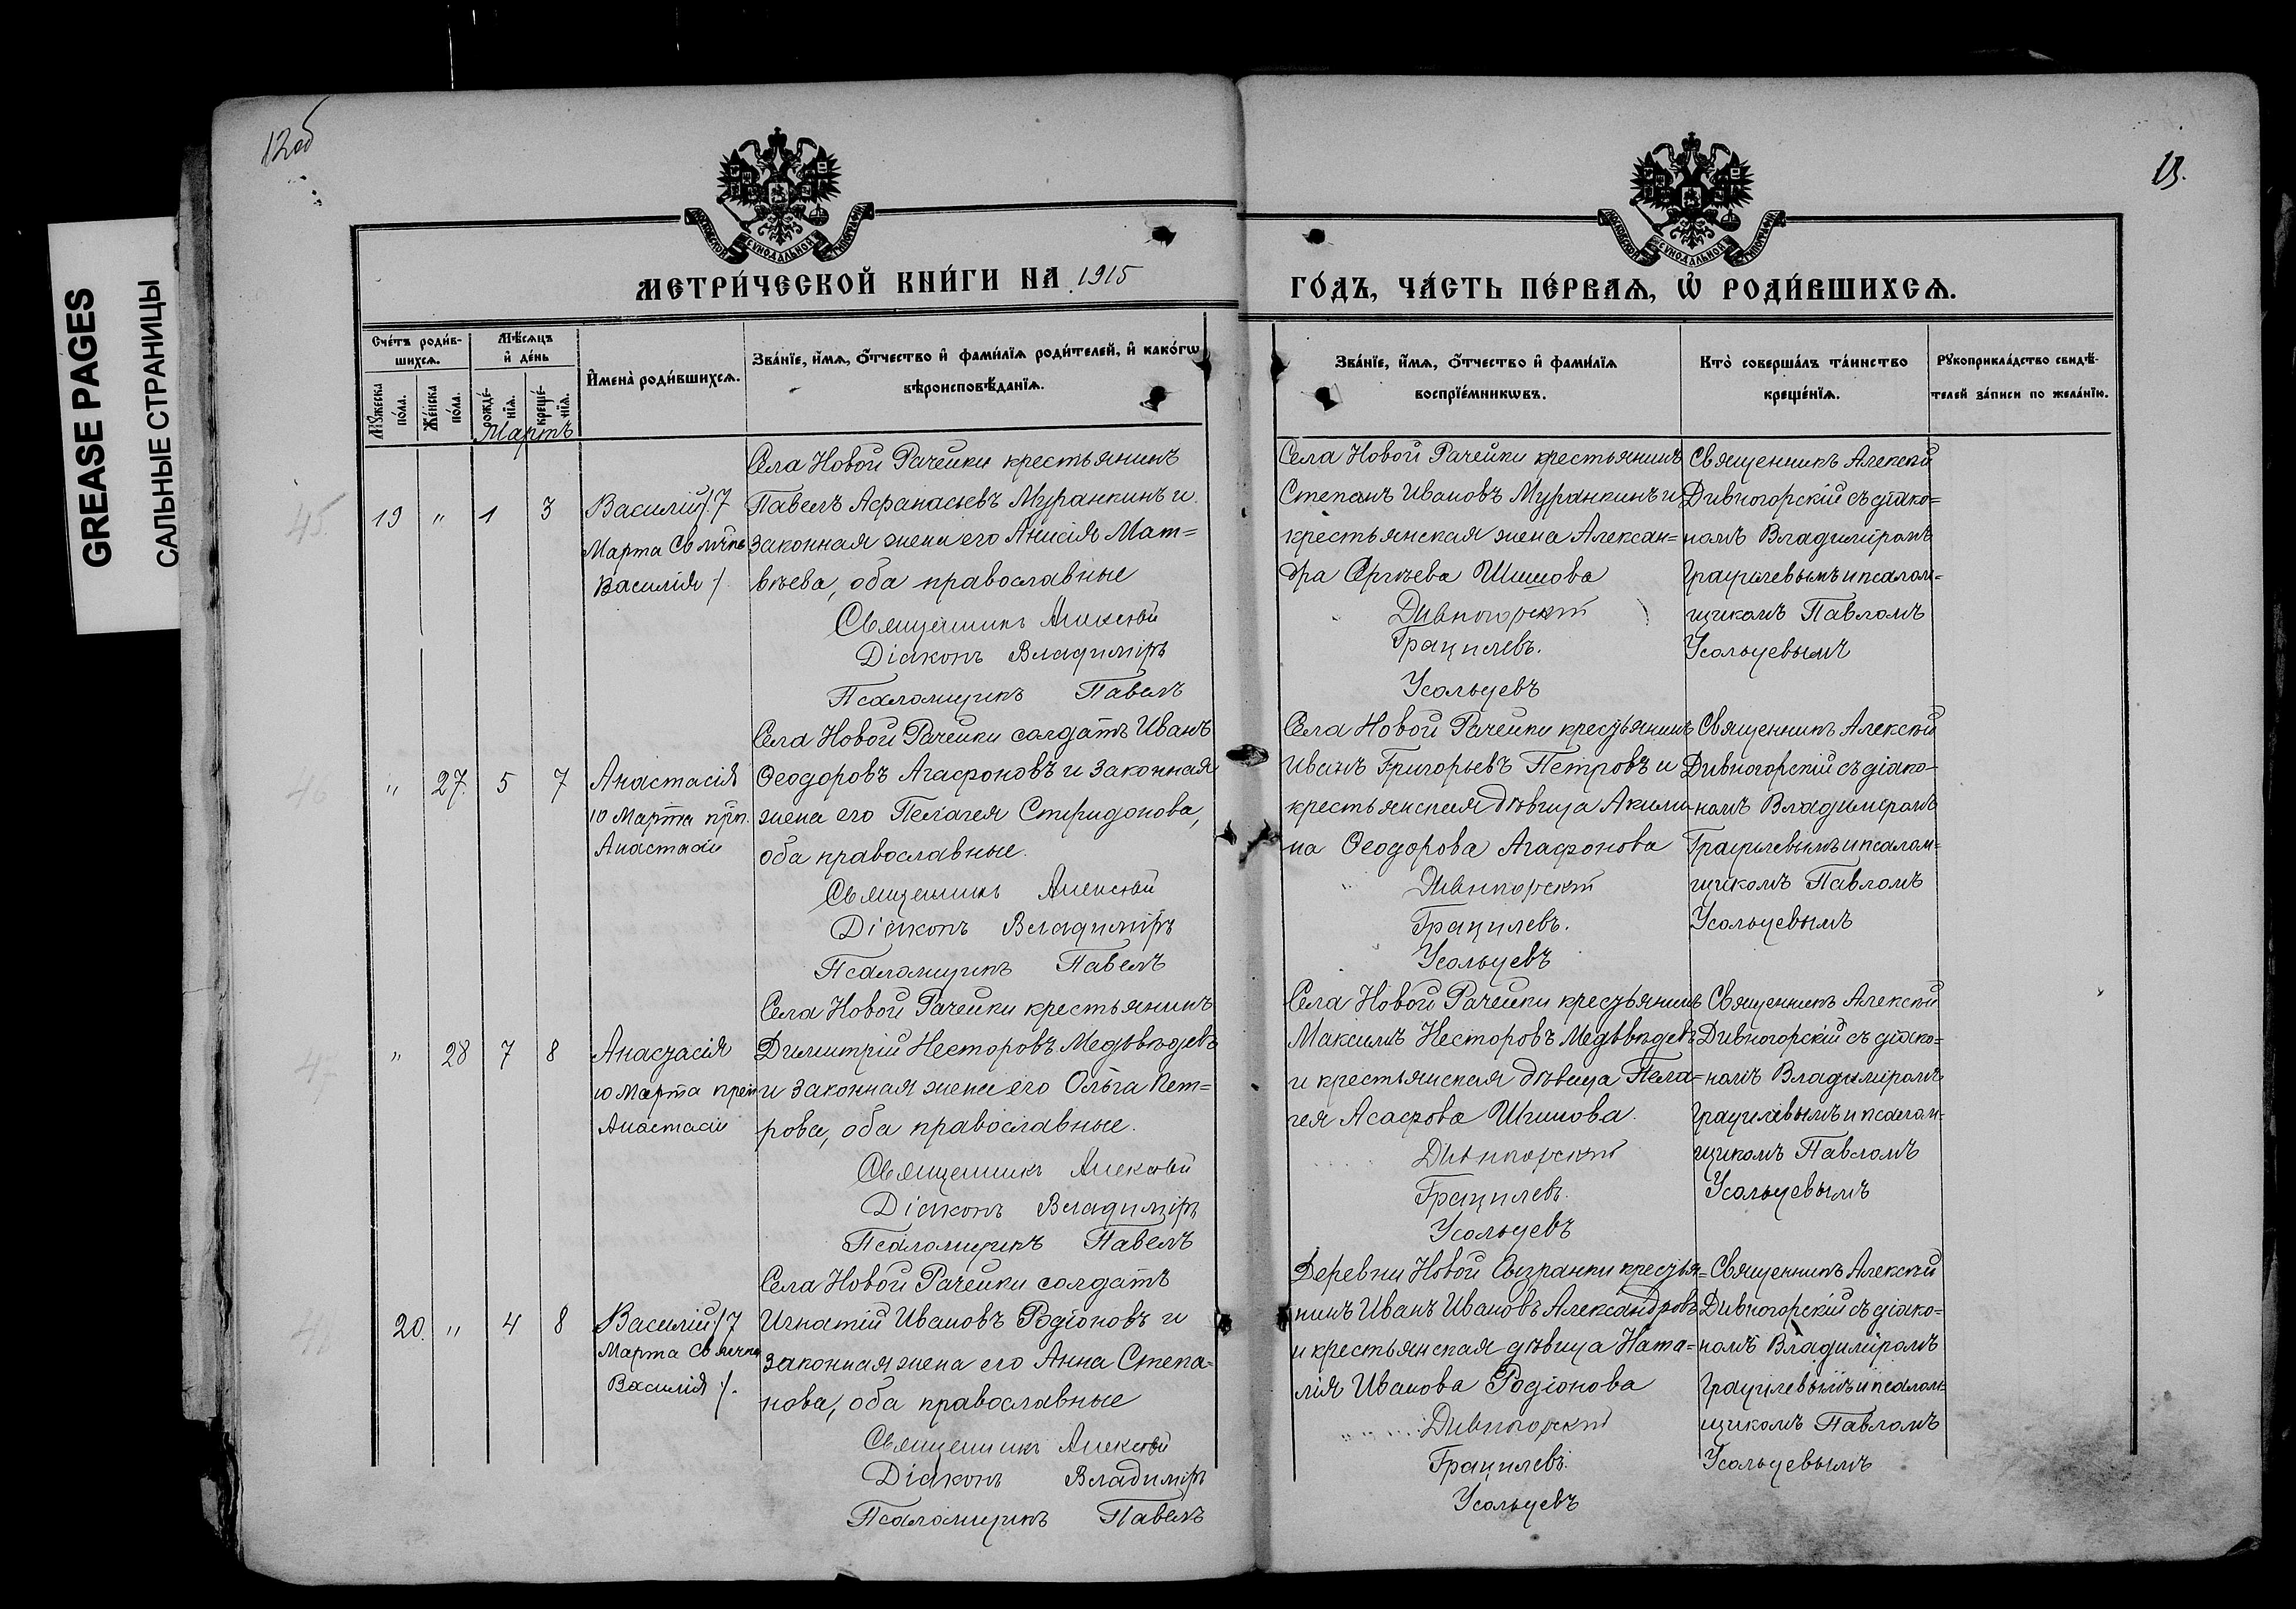 GREASE PAGES
САЛЬНЫЕ СТРАНИЦЫ
12об
13.
МЕТРИ́ЧЕСКОЙ КНИ́ГИ НА 1915
ГО́ДЪ, ЧА́СТЬ ПЕ́РВАѦ, Ѡ҆ РОДИ́ВШИХСѦ.
Сче́тъ роди́в-
шихсѧ.
Мѣ́сѧцъ
и҆ де́нь
И҆мена̀ роди́вшихсѧ.
Зва́нїе, и҆́мѧ, ѻ҆́тчество и҆ фами́лїѧ роди́телей, и҆ како́гѡ
вѣроисповѣ́данїѧ.
Мꙋ́жеска
по́ла.
Же́нска
по́ла.
рожде́-
нїѧ.
креще́-
нїѧ.
Зва́нїе, и҆́мѧ, ѻ҆́тчество и҆ фами́лїѧ
воспрїе́мникѡвъ.
Кто̀ соверша́лъ та́инство
креще́нїѧ.
Рꙋкоприкла́дство свидѣ́-
телей за́писи по жела́нїю.
Мартъ
45.
19 " 1 3
Василій /.7
Марта Св мчка
Василія /.
Села Новой Рачейки крестьянинъ
Павелъ Афанасьевъ Муранкинъ и
законная жена его Анисія Мат=
вѣева, оба православные
Священникъ Алексѣй
Діаконъ Владиміръ
Псаломщикъ Павелъ
Села Новой Рачейки крестьянинъ
Степанъ Ивановъ Муранкинъ и
крестьянская жена Алексан=
дра Сергѣева Шишова
Дивногорскій
Грацилевъ.
Усольцевъ
Священникъ Алексѣй
Дивногорскій съ діако=
номъ Владиміромъ
Грацилевымъ и псалом=
щикомъ Павломъ
Усольцевымъ
46
" 27. 5 7
Анастасія
10 Марта прп.
Анастасіи
Села Новой Рачейки солдатъ Иванъ
Ѳеодоровъ Агафоновъ и законная
жена его Пелагея Спиридонова,
оба православные.
Священникъ Алексѣй
Діаконъ Владиміръ
Псаломщикъ Павелъ
Села Новой Рачейки крестьянинъ
Иванъ Григорьевъ Петровъ и
крестьянская дѣвица Акили-
на Ѳеодорова Агафонова
Дивногорскій
Грацилевъ.
Усольцевъ
Священникъ Алексѣй
Дивногорскій съ діако-
номъ Владиміромъ
Грацилевымъ и псалом=
щикомъ Павломъ
Усольцевымъ
" 28 7 8
Анастасія
10 Марта преп
Анастасіи
Села Новой Рачейки крестьянинъ
Димитрій Несторовъ Медвѣдевъ
и законная жена его Ольга Пет=
рова, оба православные.
Священникъ Алексѣй
Діаконъ Владиміръ
Псаломщикъ Павелъ
Села Новой Рачейки крестьянинъ
Максимъ Несторовъ Медвѣдевъ
и крестьянская дѣвица Пела=
гея Асафова Шишова.
Дивногорскій
Грацилевъ.
Усольцевъ
Священникъ Алексѣй
Дивногорскій съ діако=
номъ Владиміромъ
Грацилевымъ и псалом-
щикомъ Павломъ
Усольцевымъ
20. " 4 8
Василій /7
Марта Св мчка
Василія /.
Села Новой Рачейки солдатъ
Игнатій Ивановъ Родіоновъ и
законная жена его Анна Степа=
нова, оба православные
Священникъ Алексѣй
Діаконъ Владиміръ
Псаломщикъ Павелъ
Деревни Новой Сызранки крестья=
нинъ Иванъ Ивановъ Александровъ
и крестьянская дѣвица Ната=
лія Иванова Родіонова
Дивногорскій
Грацилевъ.
Усольцевъ
Священникъ Алексѣй
Дивногорскій съ діако=
номъ Владиміромъ
Грацилевымъ и псалом-
щикомъ Павломъ
Усольцевымъ